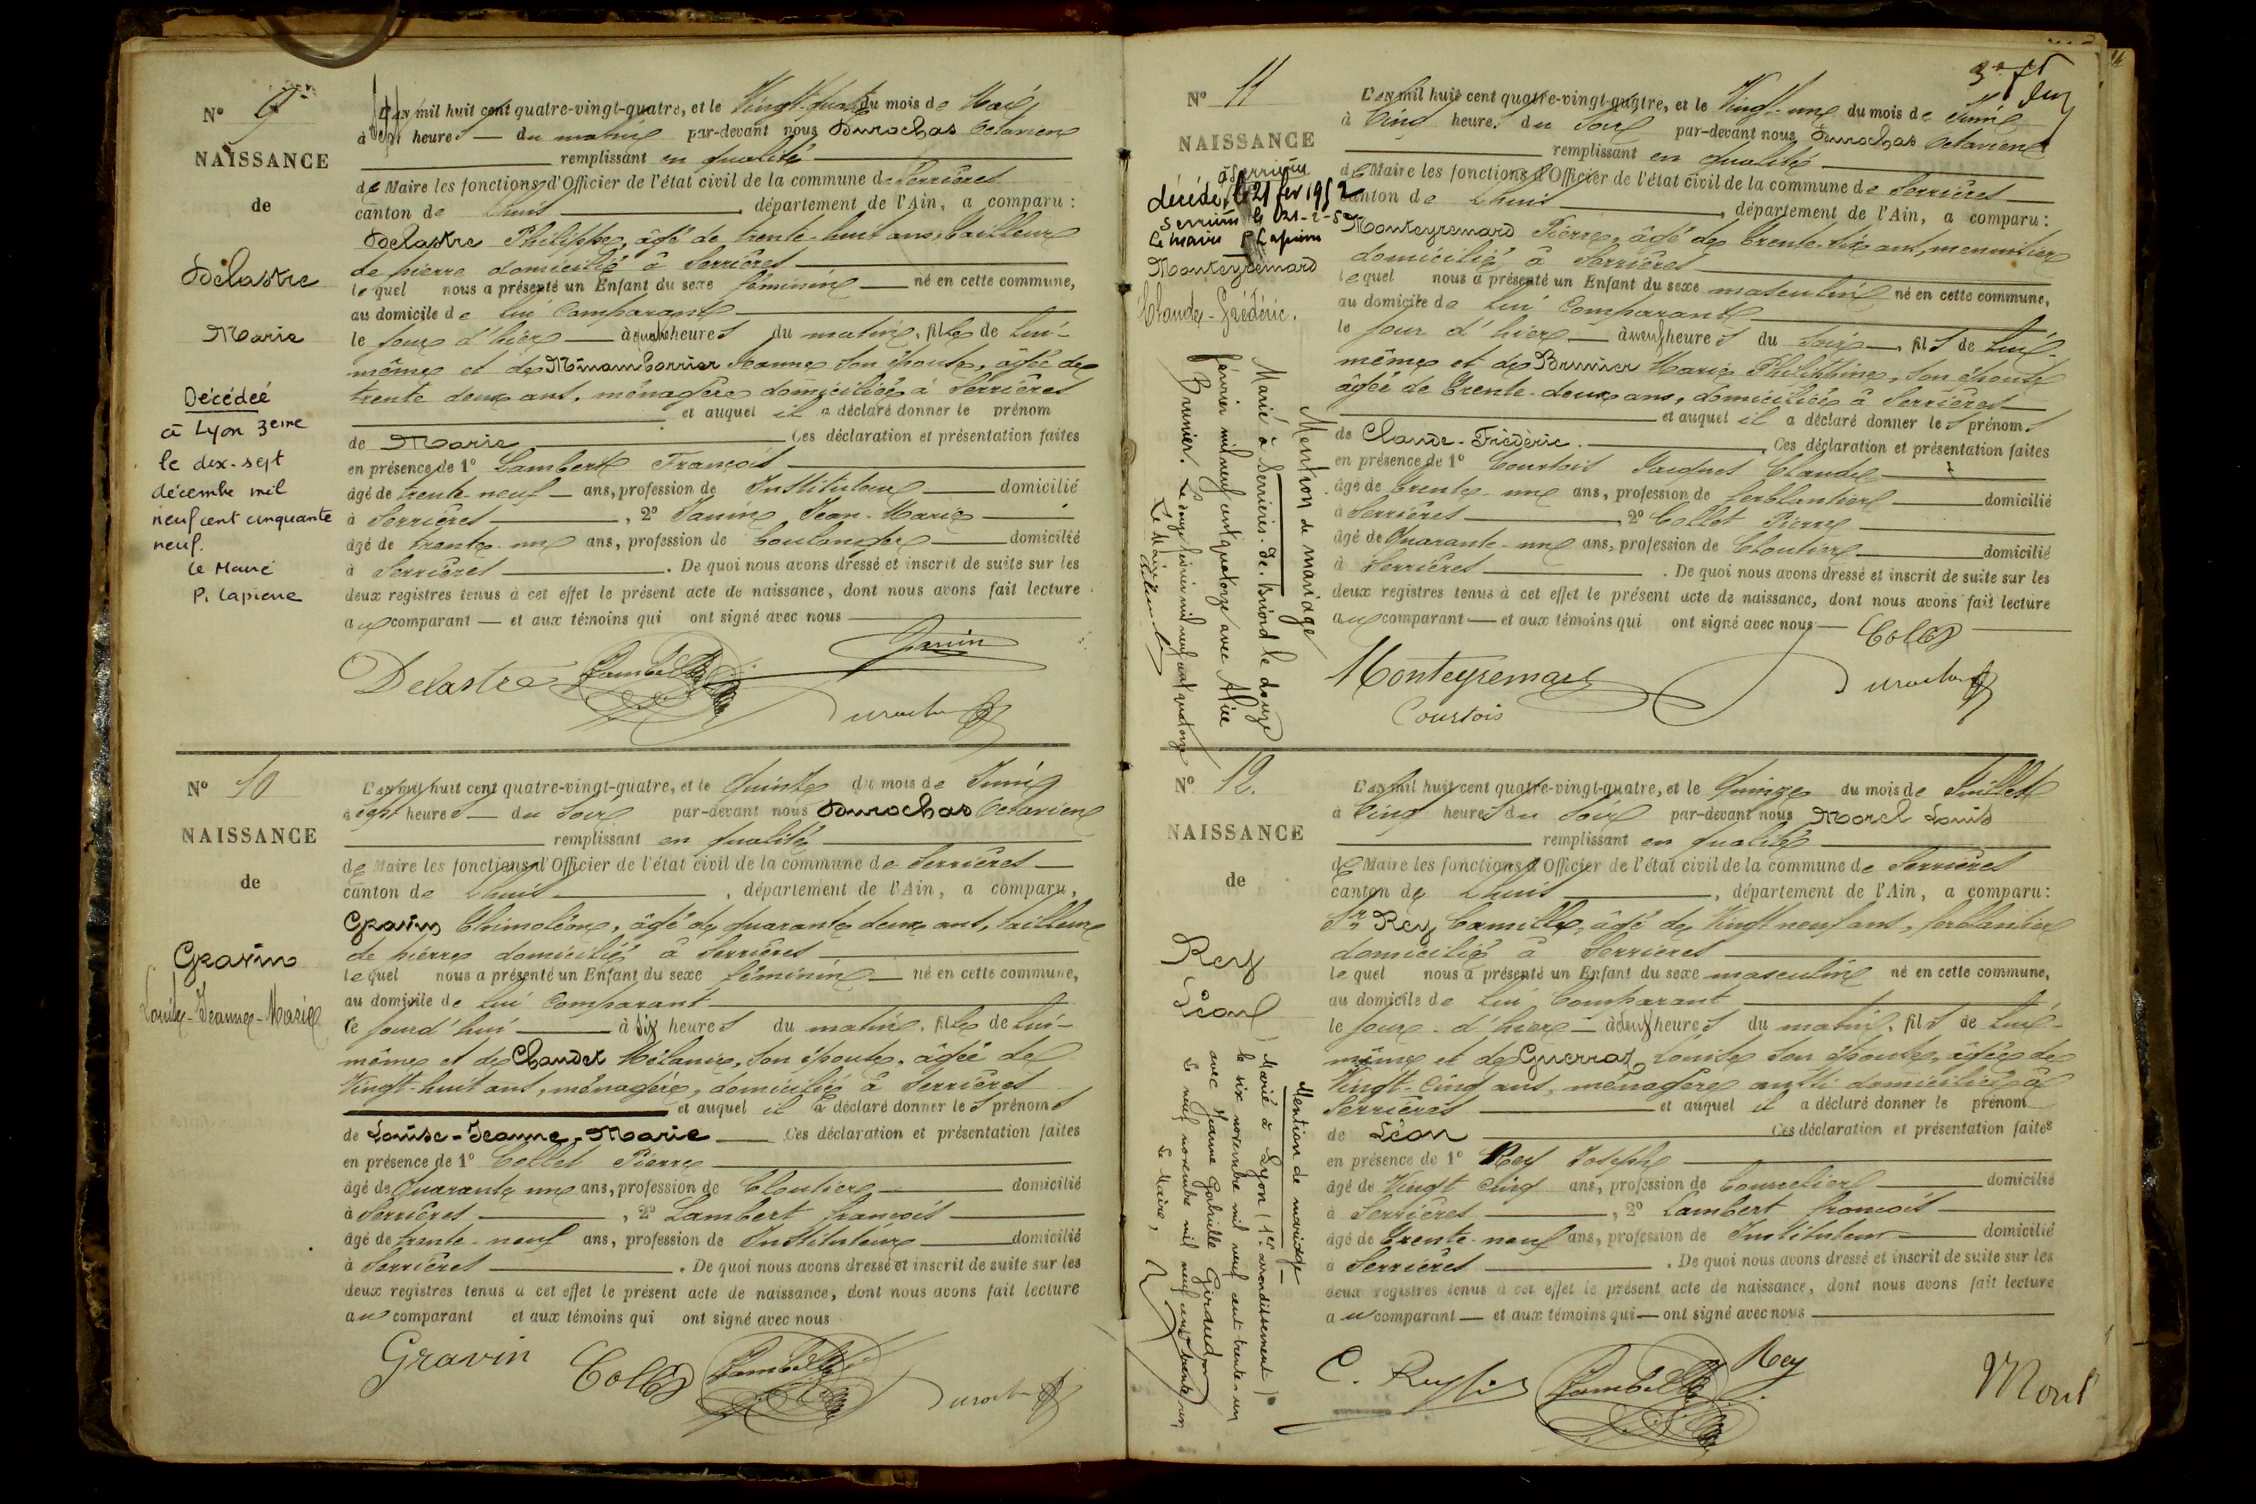 Nº 9
NAISSANCE
de
Delastre
Marie
Décédée
à Lyon 3eme
le dix-sept
décembre mil
neuf cent cinquante
neuf.
le Maire
P. Lapierre
L'an mil huit cent quatre-vingt-quatre, et le Vingt-quatre du mois de Mai
à Sept heures — du matin par-devant nous Durochas Octavien
remplissant en qualité
de Maire les fonctions d'Officier de l'état civil de la commune de Serrières
canton de Lhuis, département de l'Ain, a comparu :
Delastre Philippe, âgé de trente-huit ans, tailleur
de pierre domicilié à Serrières
lequel nous a présenté un Enfant du sexe féminin — né en cette commune,
au domicile de lui Comparant
le jour d'hier — à quatre heures du matin, fille de lui-
même et de Jeanne son épouse, âgée de
trente deux ans, ménagère domiciliée à Serrières
et auquel il a déclaré donner le prénom
de Marie. Ces déclaration et présentation faites
en présence de 1º Lambert François
âgé de trente-neuf — ans, profession de Instituteur — domicilié
à Serrières, 2º Janin Jean-Marie
âgé de trente-un ans, profession de boulanger — domicilié
à Serrières. De quoi nous avons dressé et inscrit de suite sur les
deux registres tenus à cet effet le présent acte de naissance, dont nous avons fait lecture
au comparant — et aux témoins qui ont signé avec nous
Janin
Delastre Lambert
Durochas
Nº 10
NAISSANCE
de
Gravin
Louise-Jeanne-Marie
L'an mil huit cent quatre-vingt-quatre, et le Quinze du mois de Juin
à Sept heures — du soir par-devant nous Durochas Octavien
remplissant en qualité
de Maire les fonctions d'Officier de l'état civil de la commune de Serrières
canton de Lhuis, département de l'Ain, a comparu,
Gravin Thimoléon, âgé de quarante deux ans, tailleur
de pierre domicilié à Serrières
lequel nous a présenté un Enfant du sexe féminin — né en cette commune,
au domicile de lui Comparant
le jourd'hui — à six heures du matin, fille de lui-
même et de Chaudet Mélanie, son épouse, âgée de
Vingt-huit ans, ménagère, domiciliée à Serrières
et auquel il a déclaré donner les prénoms
de Louise-Jeanne-Marie — Ces déclaration et présentation faites
en présence de 1º Collet Pierre
âgé de Quarante un ans, profession de Cloutier — domicilié
à Serrières, 2º Lambert françois
âgé de trente-neuf ans, profession de Instituteur — domicilié
à Serrières. De quoi nous avons dressé et inscrit de suite sur les
deux registres tenus à cet effet le présent acte de naissance, dont nous avons fait lecture
au comparant et aux témoins qui ont signé avec nous
Gravin Collet Lambert
Durochas
Nº 11
NAISSANCE
à Serrières
décédé le 21 fev 1952
Serrières le 21-2-52
Le Maire P Lapierre
Monteyremard
Claude-Frédéric.
Mention de mariage
Marié à Serrières-de-Briord le douze
février mil neuf cent quatorze avec Alice
Brunier. Le douze février mil neuf cent quatorze
Le Maire
L'an mil huit cent quatre-vingt-quatre, et le Vingt-un du mois de Juin
à Cinq heures du Soir par-devant nous Durochas Octavien
remplissant en qualité
de Maire les fonctions d'Officier de l'état civil de la commune de Serrières
canton de Lhuis, département de l'Ain, a comparu :
Monteyremard Pierre, âgé de Trente-six ans, menuisier
domicilié à Serrières
lequel nous a présenté un Enfant du sexe masculin né en cette commune,
au domicile de Lui Comparant
le jour d'hier — à neuf heures du Soir —, fils de Lui-
même et de Brunier Marie Philippine, son épouse
âgée de Trente-deux ans, domiciliée à Serrières
et auquel il a déclaré donner les prénoms
de Claude-Frédéric. Ces déclaration et présentation faites
en présence de 1º Courtois Jacques Claude
âgé de Trente-un ans, profession de ferblantier — domicilié
à Serrières 2º Collet Pierre
âgé de Quarante-un ans, profession de Cloutier — domicilié
à Serrières. De quoi nous avons dressé et inscrit de suite sur les
deux registres tenus à cet effet le présent acte de naissance, dont nous avons fait lecture
au comparant — et aux témoins qui ont signé avec nous — Collet
Monteyremard Durochas
Courtois
Nº 12.
NAISSANCE
de
Rey
Léon
Mention de mariage
Marié à Lyon (1er arrondissement)
le six novembre mil neuf cent trente-un
avec Jeanne Gabrielle Giraudon
Le neuf novembre mil neuf cent trente un
Le Maire,
L'an mil huit cent quatre-vingt-quatre, et le Quinze du mois de Juillet
à Cinq heures du Soir par-devant nous Morel Louis
remplissant en qualité
de Maire les fonctions d'Officier de l'état civil de la commune de Serrières
canton de Lhuis, département de l'Ain, a comparu :
Sr Rey Camille, âgé de Vingt neuf ans, ferblantier
domicilié à Serrières
lequel nous a présenté un Enfant du sexe masculin né en cette commune,
au domicile de Lui Comparant
le jour-d'hier — à deux heures du matin, fils de Lui-
même et de Guerraz Louise son épouse, âgée de
Vingt-Cinq ans, ménagère aussi domiciliée à
Serrières et auquel il a déclaré donner le prénom
de Léon Ces déclaration et présentation faites
en présence de 1º Rey Joseph
âgé de Vingt Cinq ans, profession de — domicilié
à Serrières, 2º Lambert françois
âgé de Trente-neuf ans, profession de Instituteur — domicilié
à Serrières. De quoi nous avons dressé et inscrit de suite sur les
deux registres tenus à cet effet le présent acte de naissance, dont nous avons fait lecture
au comparant — et aux témoins qui — ont signé avec nous
C. Rey Lambert Rey
Morel